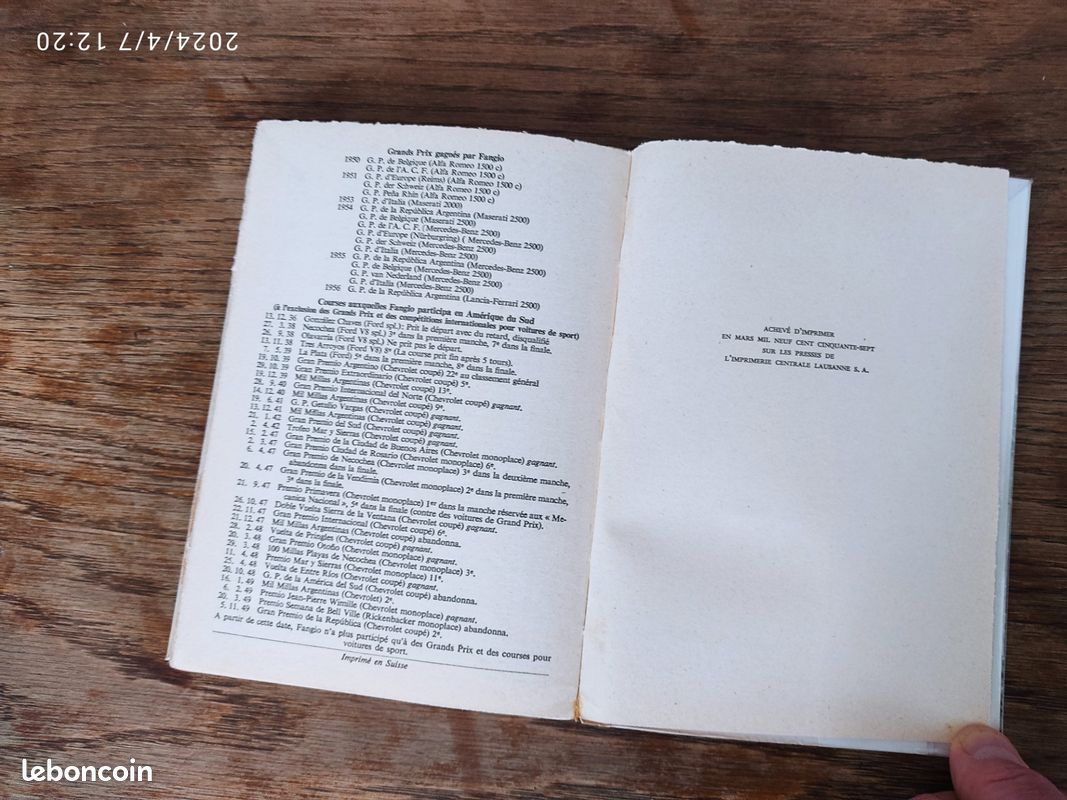 2024/4/7 12:20
Grands Prix gagnés par Fangio
1950 G. P. de Belgique (Alfa Romeo 1500 c)
G. P. de l'A. C. F. (Alfa Romeo 1500 c)
1951 G. P. d'Europe (Reims) (Alfa Romeo 1500 c)
G. P. der Schweiz (Alfa Romeo 1500 c)
G. P. Peña Rhin (Alfa Romeo 1500 c)
1953 G. P. d'Italia (Maserati 2000)
1954 G. P. de la República Argentina (Maserati 2500)
G. P. de Belgique (Maserati 2500)
G. P. de l'A. C. F. (Mercedes-Benz 2500)
G. P. d'Europe (Nürburgring) ( Mercedes-Benz 2500)
G. P. der Schweiz (Mercedes-Benz 2500)
G. P. d'Italia (Mercedes-Benz 2500)
1955 G. P. de la República Argentina (Mercedes-Benz 2500)
G. P. de Belgique (Mercedes-Benz 2500)
G. P. van Nederland (Mercedes-Benz 2500)
G. P. d'Italia (Mercedes-Benz 2500)
1956 G. P. de la República Argentina (Lancia-Ferrari 2500)
Courses auxquelles Fangio participa en Amérique du Sud
(à l'exclusion des Grands Prix et des compétitions internationales pour voitures de sport)
13. 12. 36 González Chaves (Ford spl.): Prit le départ avec du retard, disqualifié
27. 3. 38 Necochea (Ford V8 spl.) 3e dans la première manche, 7e dans la finale.
26. 9. 38 Olavarria (Ford V8 spl.) Ne prit pas le départ.
13. 11. 38 Tres Arroyos (Ford V8) 8e (La course prit fin après 5 tours).
7. 5. 39 La Plata (Ford) 5e dans la première manche, 8e dans la finale.
19. 10. 39 Gran Premio Argentino (Chevrolet coupé) 22e au classement général
29. 10. 39 Gran Premio Extraordinario (Chevrolet coupé) 5e.
19. 12. 39 Mil Millas Argentinas (Chevrolet coupé) 13e.
28. 9. 40 Gran Premio Internacional del Norte (Chevrolet coupé) gagnant.
14. 12. 40 Mil Millas Argentinas (Chevrolet coupé) 9e.
19. 6. 41 G. P. Getulio Vargas (Chevrolet coupé) gagnant.
13. 12. 41 Mil Millas Argentinas (Chevrolet coupé) gagnant.
21. 1. 42 Gran Premio del Sud (Chevrolet coupé) gagnant.
2. 4. 42 Trofeo Mar y Sierras (Chevrolet coupé) gagnant.
15. 2. 47 Gran Premio de la Ciudad de Buenos Aires (Chevrolet monoplace) gagnant.
2. 3. 47 Gran Premio Ciudad de Rosario (Chevrolet monoplace) 6e.
6. 4. 47 Gran Premio de Necochea (Chevrolet monoplace) 3e dans la deuxième manche,
abandonna dans la finale.
20. 4. 47 Gran Premio de la Vendimia (Chevrolet monoplace) 2e dans la première manche,
3e dans la finale.
21. 9. 47 Premio Primavera (Chevrolet monoplace) 1er dans la manche réservée aux « Me-
canica Nacional », 5e dans la finale (contre des voitures de Grand Prix).
26. 10. 47 Doble Vuelta Sierra de la Ventana (Chevrolet coupé) gagnant.
22. 11. 47 Gran Premio Internacional (Chevrolet coupé) 6e.
21. 12. 47 Mil Millas Argentinas (Chevrolet coupé) abandonna.
28. 2. 48 Vuelta de Pringles (Chevrolet coupé) gagnant.
20. 3. 48 Gran Premio Otoño (Chevrolet monoplace) gagnant.
29. 3. 48 100 Millas Playas de Necochea (Chevrolet monoplace) 3e.
11. 4. 48 Premio Mar y Sierras (Chevrolet monoplace) 11e.
25. 4. 48 Vuelta de Entre Ríos (Chevrolet coupé) gagnant.
20. 10. 48 G. P. de la América del Sud (Chevrolet coupé) abandonna.
16. 1. 49 Mil Millas Argentinas (Chevrolet) 2e.
6. 2. 49 Premio Jean-Pierre Wimille (Chevrolet monoplace) gagnant.
20. 3. 49 Premio Semana de Bell Ville (Rickenbacker monoplace) abandonna.
5. 11. 49 Gran Premio de la República (Chevrolet coupé) 2e.
A partir de cette date, Fangio n'a plus participé qu'à des Grands Prix et des courses pour
voitures de sport.
Imprimé en Suisse
ACHEVÉ D'IMPRIMER
EN MARS MIL NEUF CENT CINQUANTE-SEPT
SUR LES PRESSES DE
L'IMPRIMERIE CENTRALE LAUSANNE S. A.
leboncoin